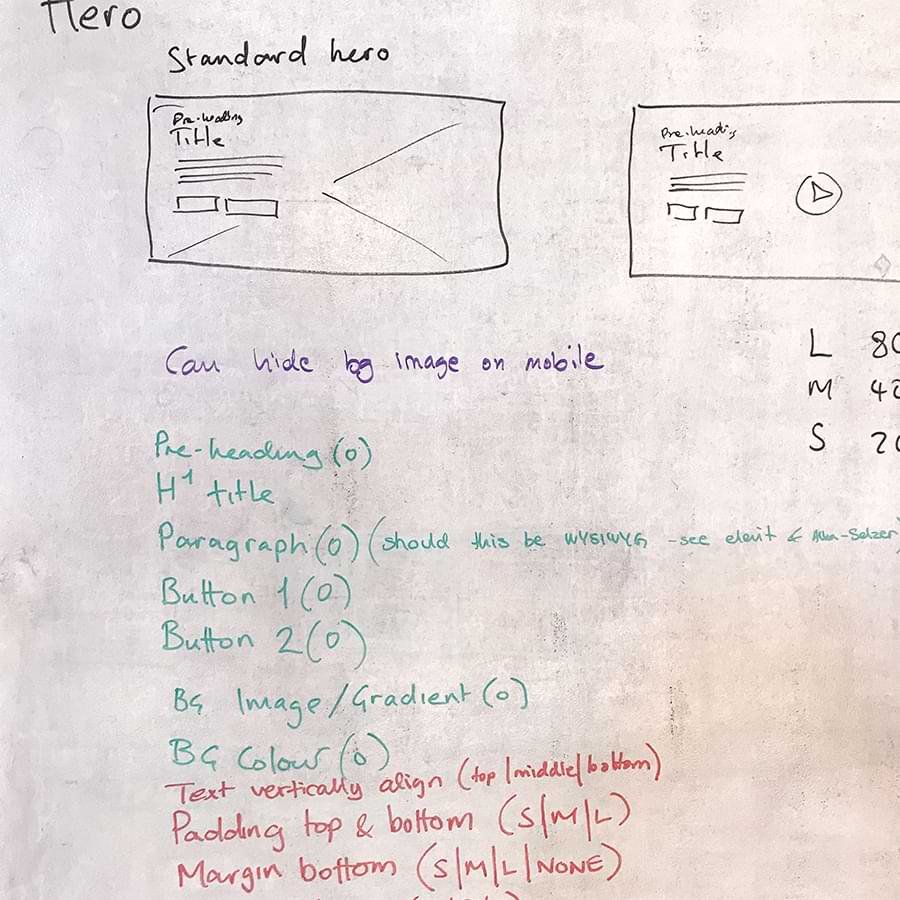 Hero
Standard hero
Pre-heading
Title
Pre-heading
Title
Can hide bg image on mobile
L 80
M 40
S 20
Pre-heading (0)
H1 title
Paragraph (0) (should this be WYSIWYG - see elevit & Alka-Selzer
Button 1 (0)
Button 2 (0)
BG Image/Gradient (0)
BG Colour (0)
Text vertically align (top|middle|bottom)
Padding top & bottom (S|M|L)
Margin bottom (S|M|L|NONE)